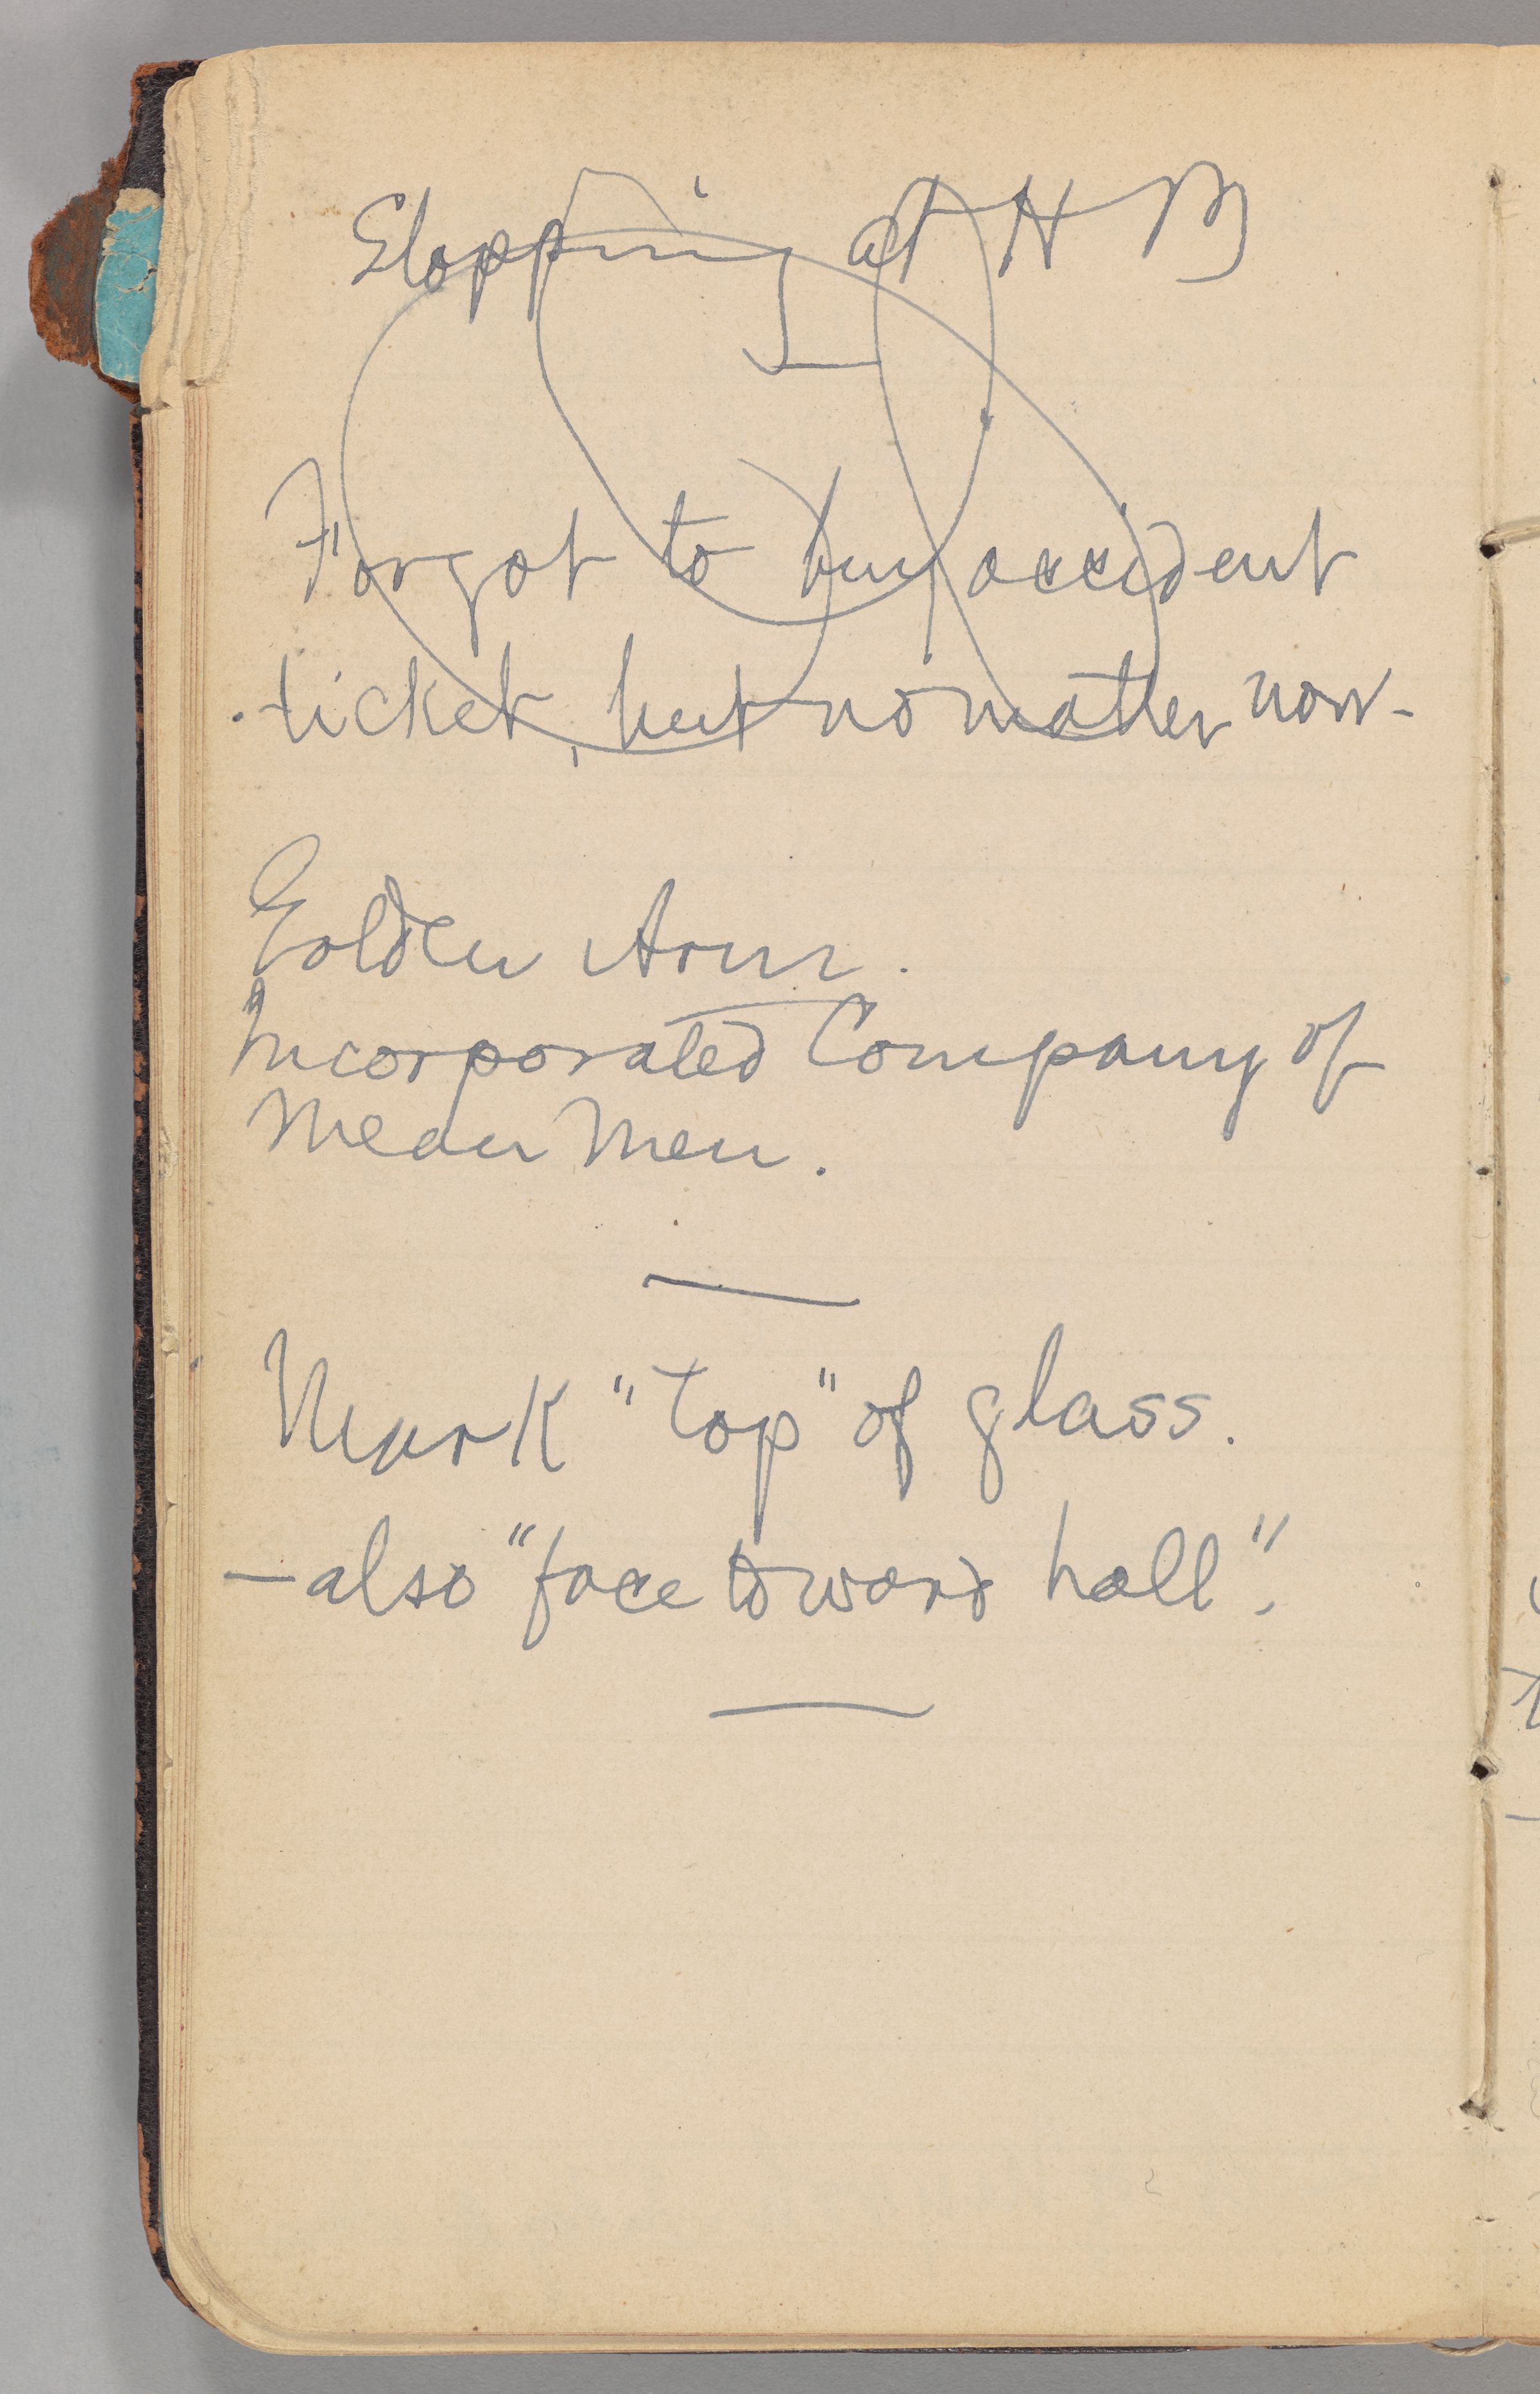 Slopping at H B
Forgot to buy accident
ticket, but no matter now—
Golden Arm.
Incorporated Company of
Mean Men.
Mark "top" of glass.
—also "face toward hall".